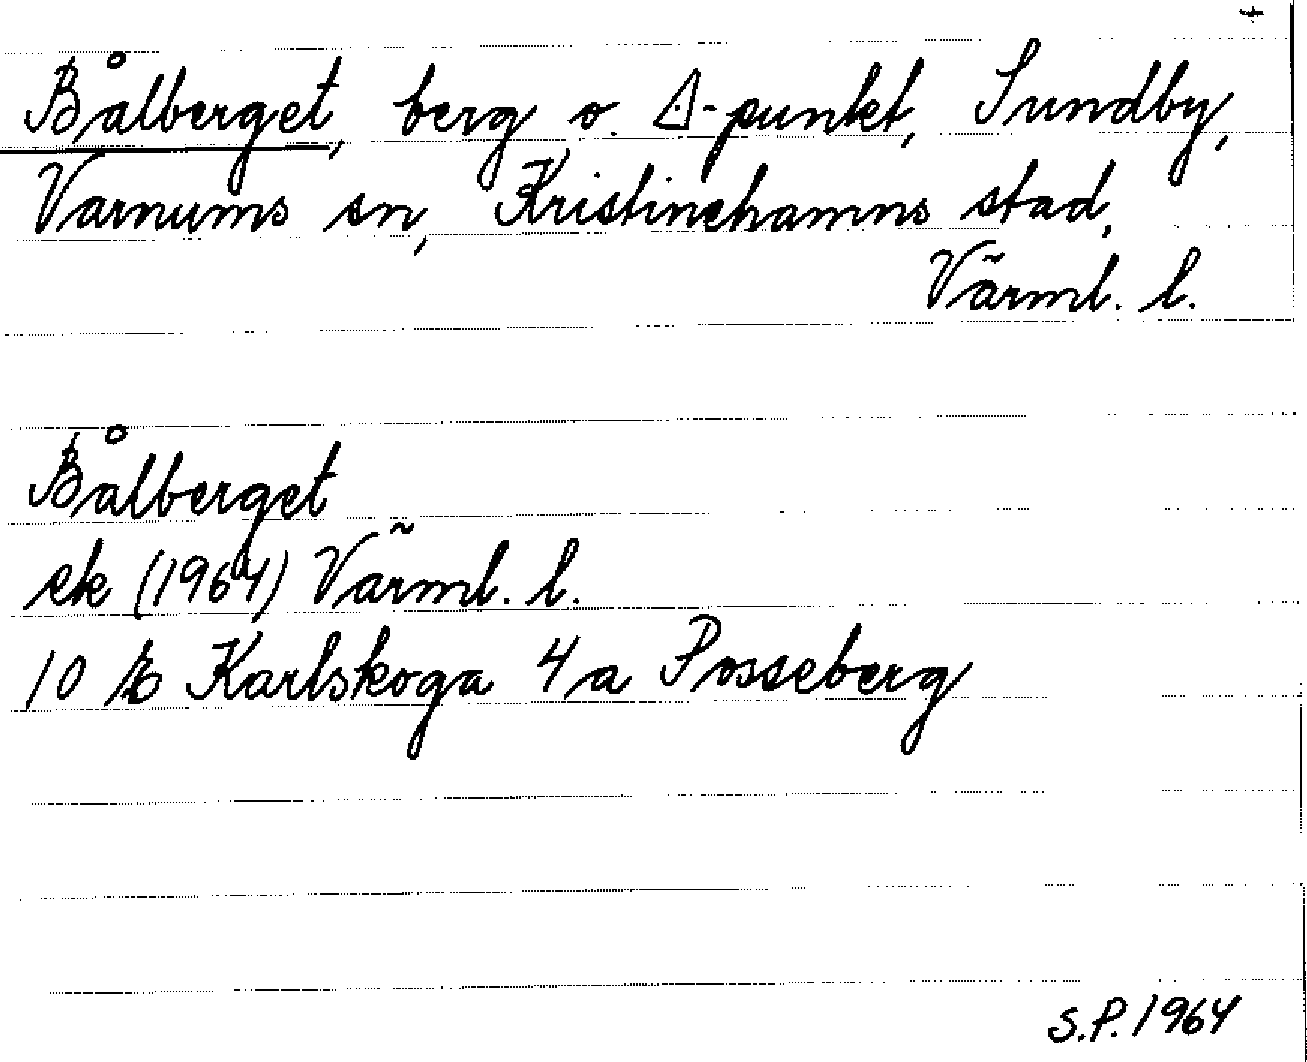 Bålberget, berg o. △-punkt, Sundby,
Varnums sn, Kristinehamns stad,
Värml. l.
Bålberget
ek (1964) Värml. l.
10 E Karlskoga 4a Posseberg
S.P. 1964